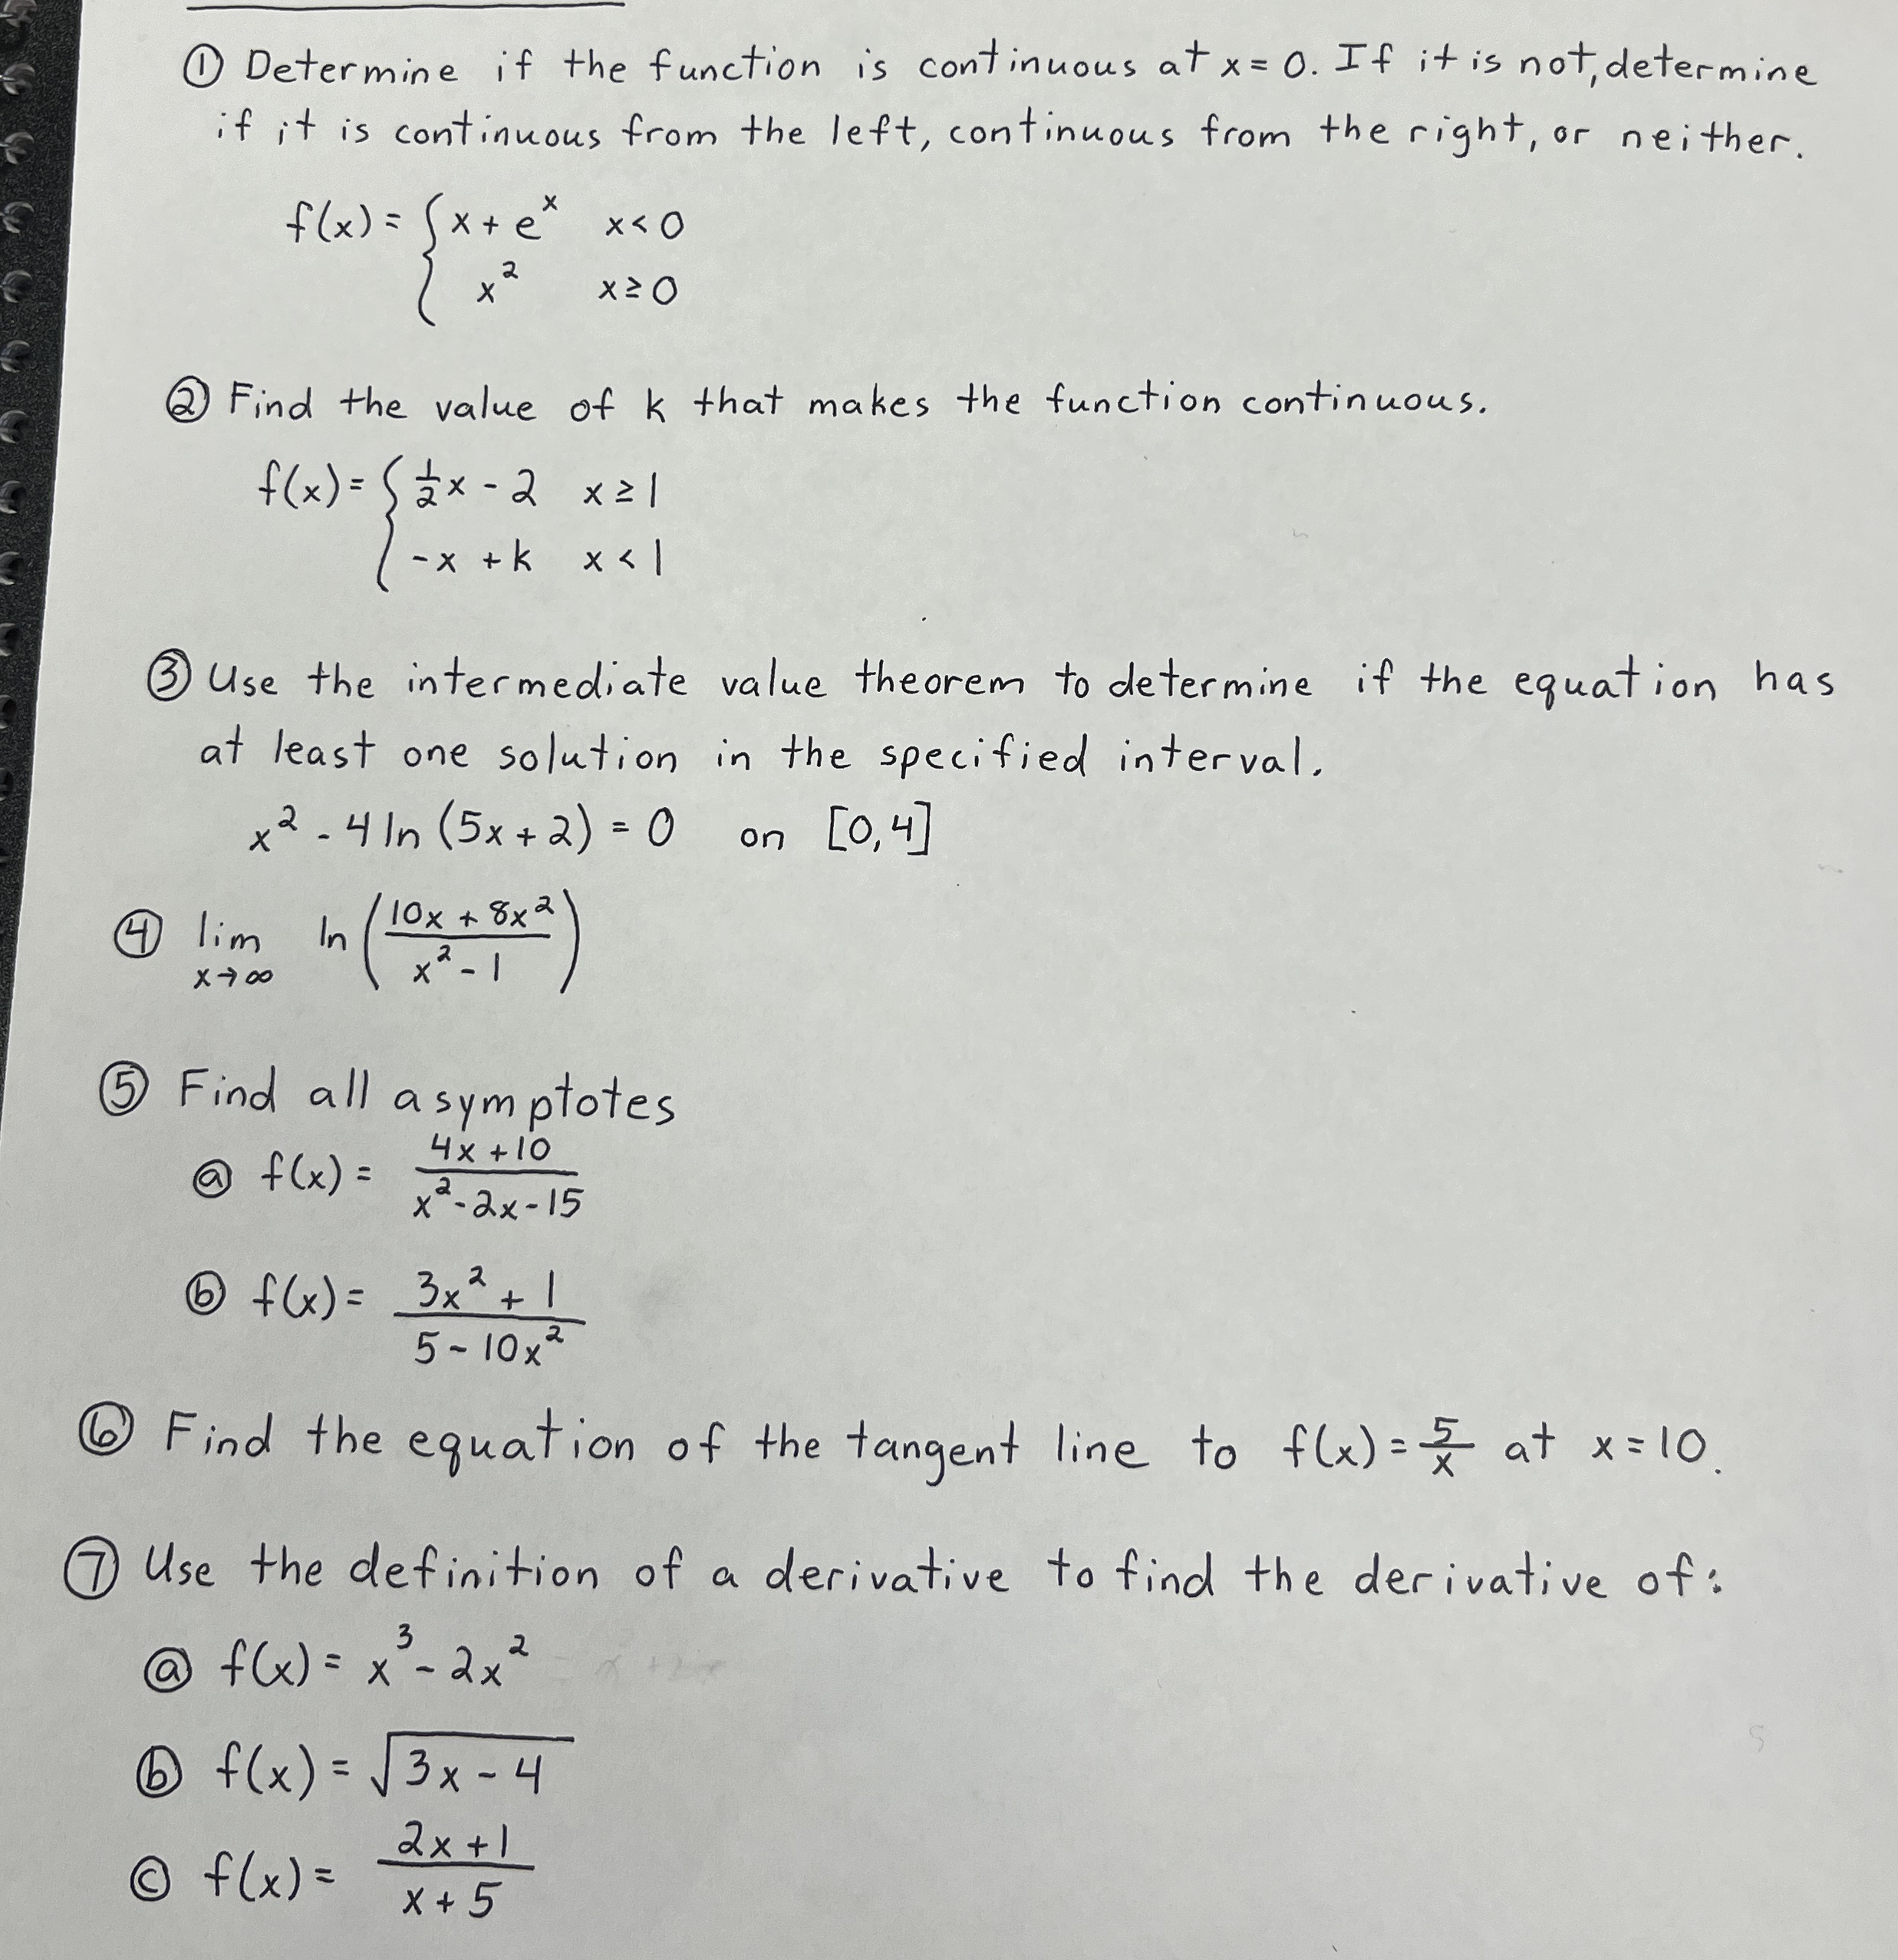 ① Determine if the function is continuous at x = 0. If it is not, determine
if it is continuous from the left, continuous from the right, or neither.
f(x) = { x + e^x   x < 0
x^2   x ≥ 0
② Find the value of k that makes the function continuous.
f(x) = { 1/2 x - 2   x ≥ 1
-x + k   x < 1
③ Use the intermediate value theorem to determine if the equation has
at least one solution in the specified interval.
x^2 - 4 ln (5x + 2) = 0   on   [0,4]
④ lim x→∞ ln ( (10x + 8x^2) / (x^2 - 1) )
⑤ Find all asymptotes
ⓐ f(x) = (4x + 10) / (x^2 - 2x - 15)
ⓑ f(x) = (3x^2 + 1) / (5 - 10x^2)
⑥ Find the equation of the tangent line to f(x) = 5/x at x = 10.
⑦ Use the definition of a derivative to find the derivative of:
ⓐ f(x) = x^3 - 2x^2
ⓑ f(x) = √(3x - 4)
ⓒ f(x) = (2x + 1) / (x + 5)